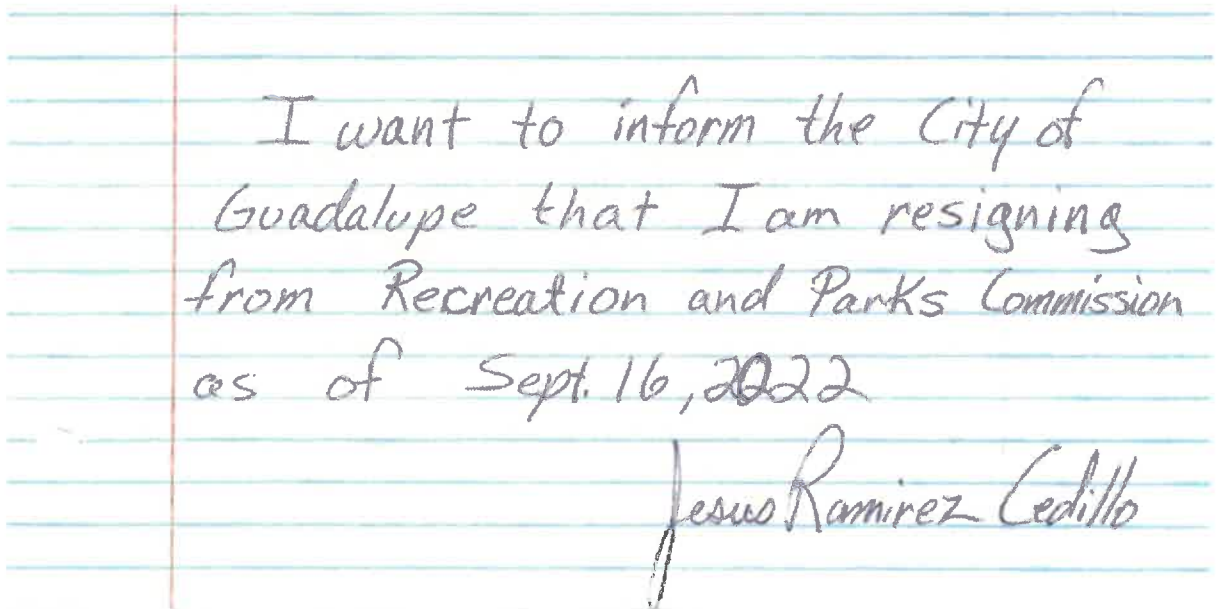 I want to inform the City of
Guadalupe that I am resigning
from Recreation and Parks Commission
as of Sept. 16, 2022
Jesus Ramirez Cedillo